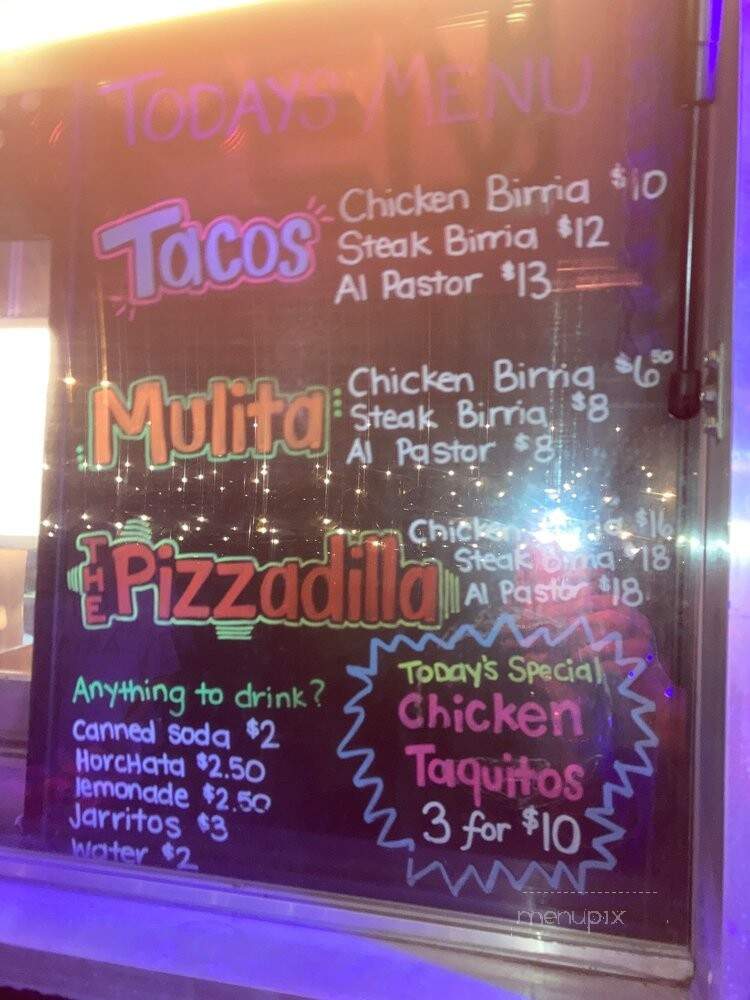 TODAYS MENU
Tacos
Chicken Birria $10
Steak Birria $12
Al Pastor $13
Mulita
Chicken Birria $6.50
Steak Birria $8
Al Pastor $8
THE Pizzadilla
Chicken $16
Steak Birria $18
Al Pastor $18
Anything to drink?
Canned soda $2
HorcHata $2.50
lemonade $2.50
Jarritos $3
Water $2
Today's Special
Chicken
Taquitos
3 for $10
menupix